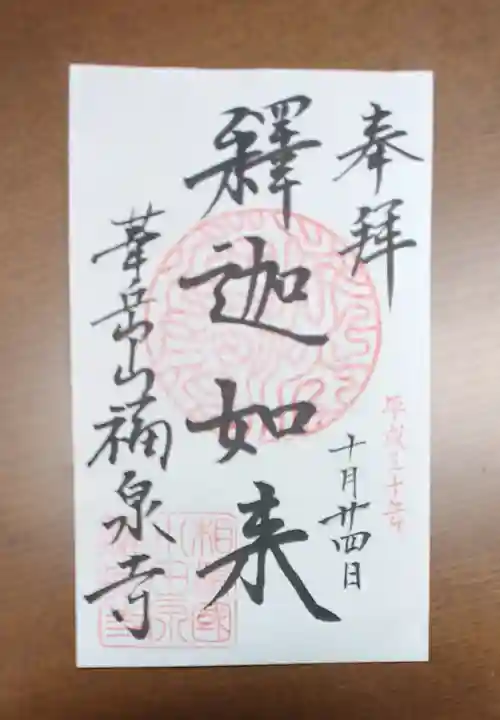 奉拝
平成三十年
十月廿四日
釋迦如来
華岳山福泉寺